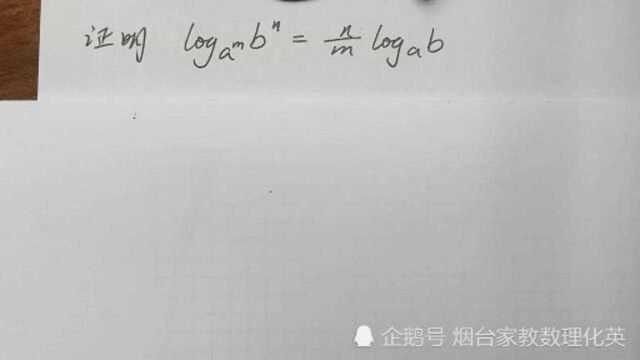 证明 log_{a^m} b^n = \frac{n}{m} log_a b
企鹅号 烟台家教数理化英